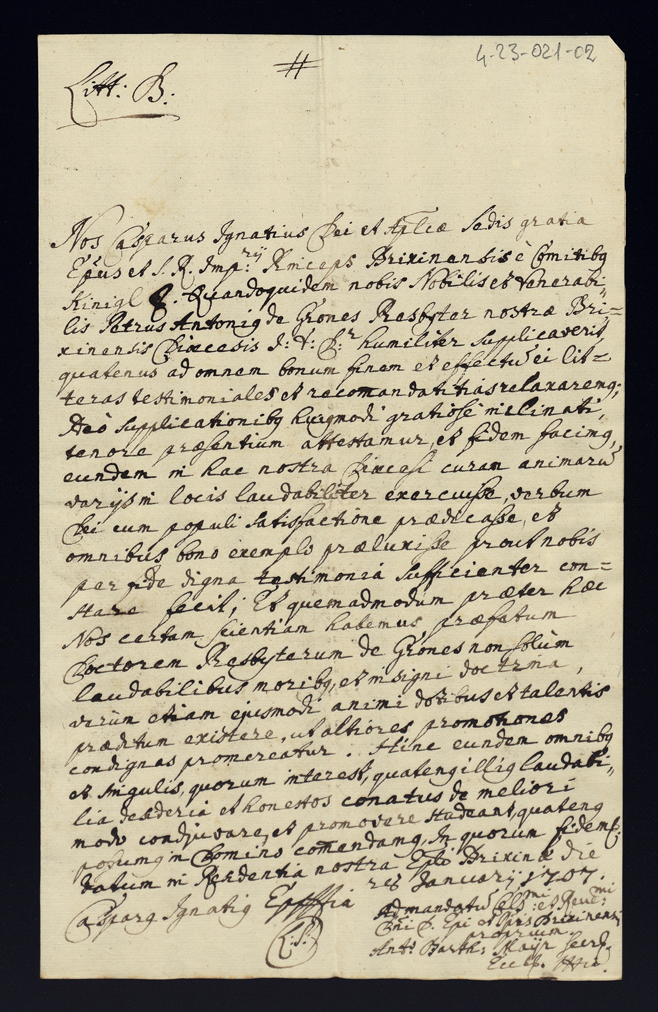 4-23-021-02
#
Litt: B:
Nos Casparus Ignatius Dei et Aplicæ Sedis gratia
Epus et S. R. Impry Princeps Brixinensis è Comitibq
Kinigl &. Quandoquidem nobis Nobilis et Venerabi„
lis Petrus Antoniq de Grones Presbyter nostræ Bri=
xinensis Diœcesis humiliter supplicaverit,
quatenus ad omnem bonum finem et effectu ei lit=
teras testimoniales et recomandatitias relaxaremq;
Hinc supplicationibq huiqmodi gratiosè inclinati,
tenore præsentium attestamur, et fidem facimq,
eundem in hac nostra Diœcesi curam animaru
varijs in locis laudabiliter exercuisse, verbum
Dei cum populi satisfactione prædicasse, et
omnibus bono exemplo præluxisse prout nobis
per fide digna testimonia sufficienter con=
stare fecit; Et quemadmodum præter hæc
Nos certam scientiam habemus præfatum
Doctorem Presbyterum de Grones non solùm
laudabilibus moribq, et insigni doctrina,
verùm etiam ejusmodi animi dotibus et talentis
præditum existere, ut altiores promotiones
condignas promereatur. Hinc eundem omnibq
et singulis, quorum interest, quatenq illiq laudabi„
lia desideria et honestos conatus de meliori
modo condjuvare, et promovere studeant, quatenq
possumq in Domino comendamq, In quorum fidem &.
Datum in Residentia nostra Epli Brixinæ die
28 Januarij 1707.
Casparq Ignatiq Epus
L.S.
Ad mandatu Celsmi et Revmi
Dni D. Epi et Ppis Brixinensis
proprium.
Ants Barths Mayr Secrs